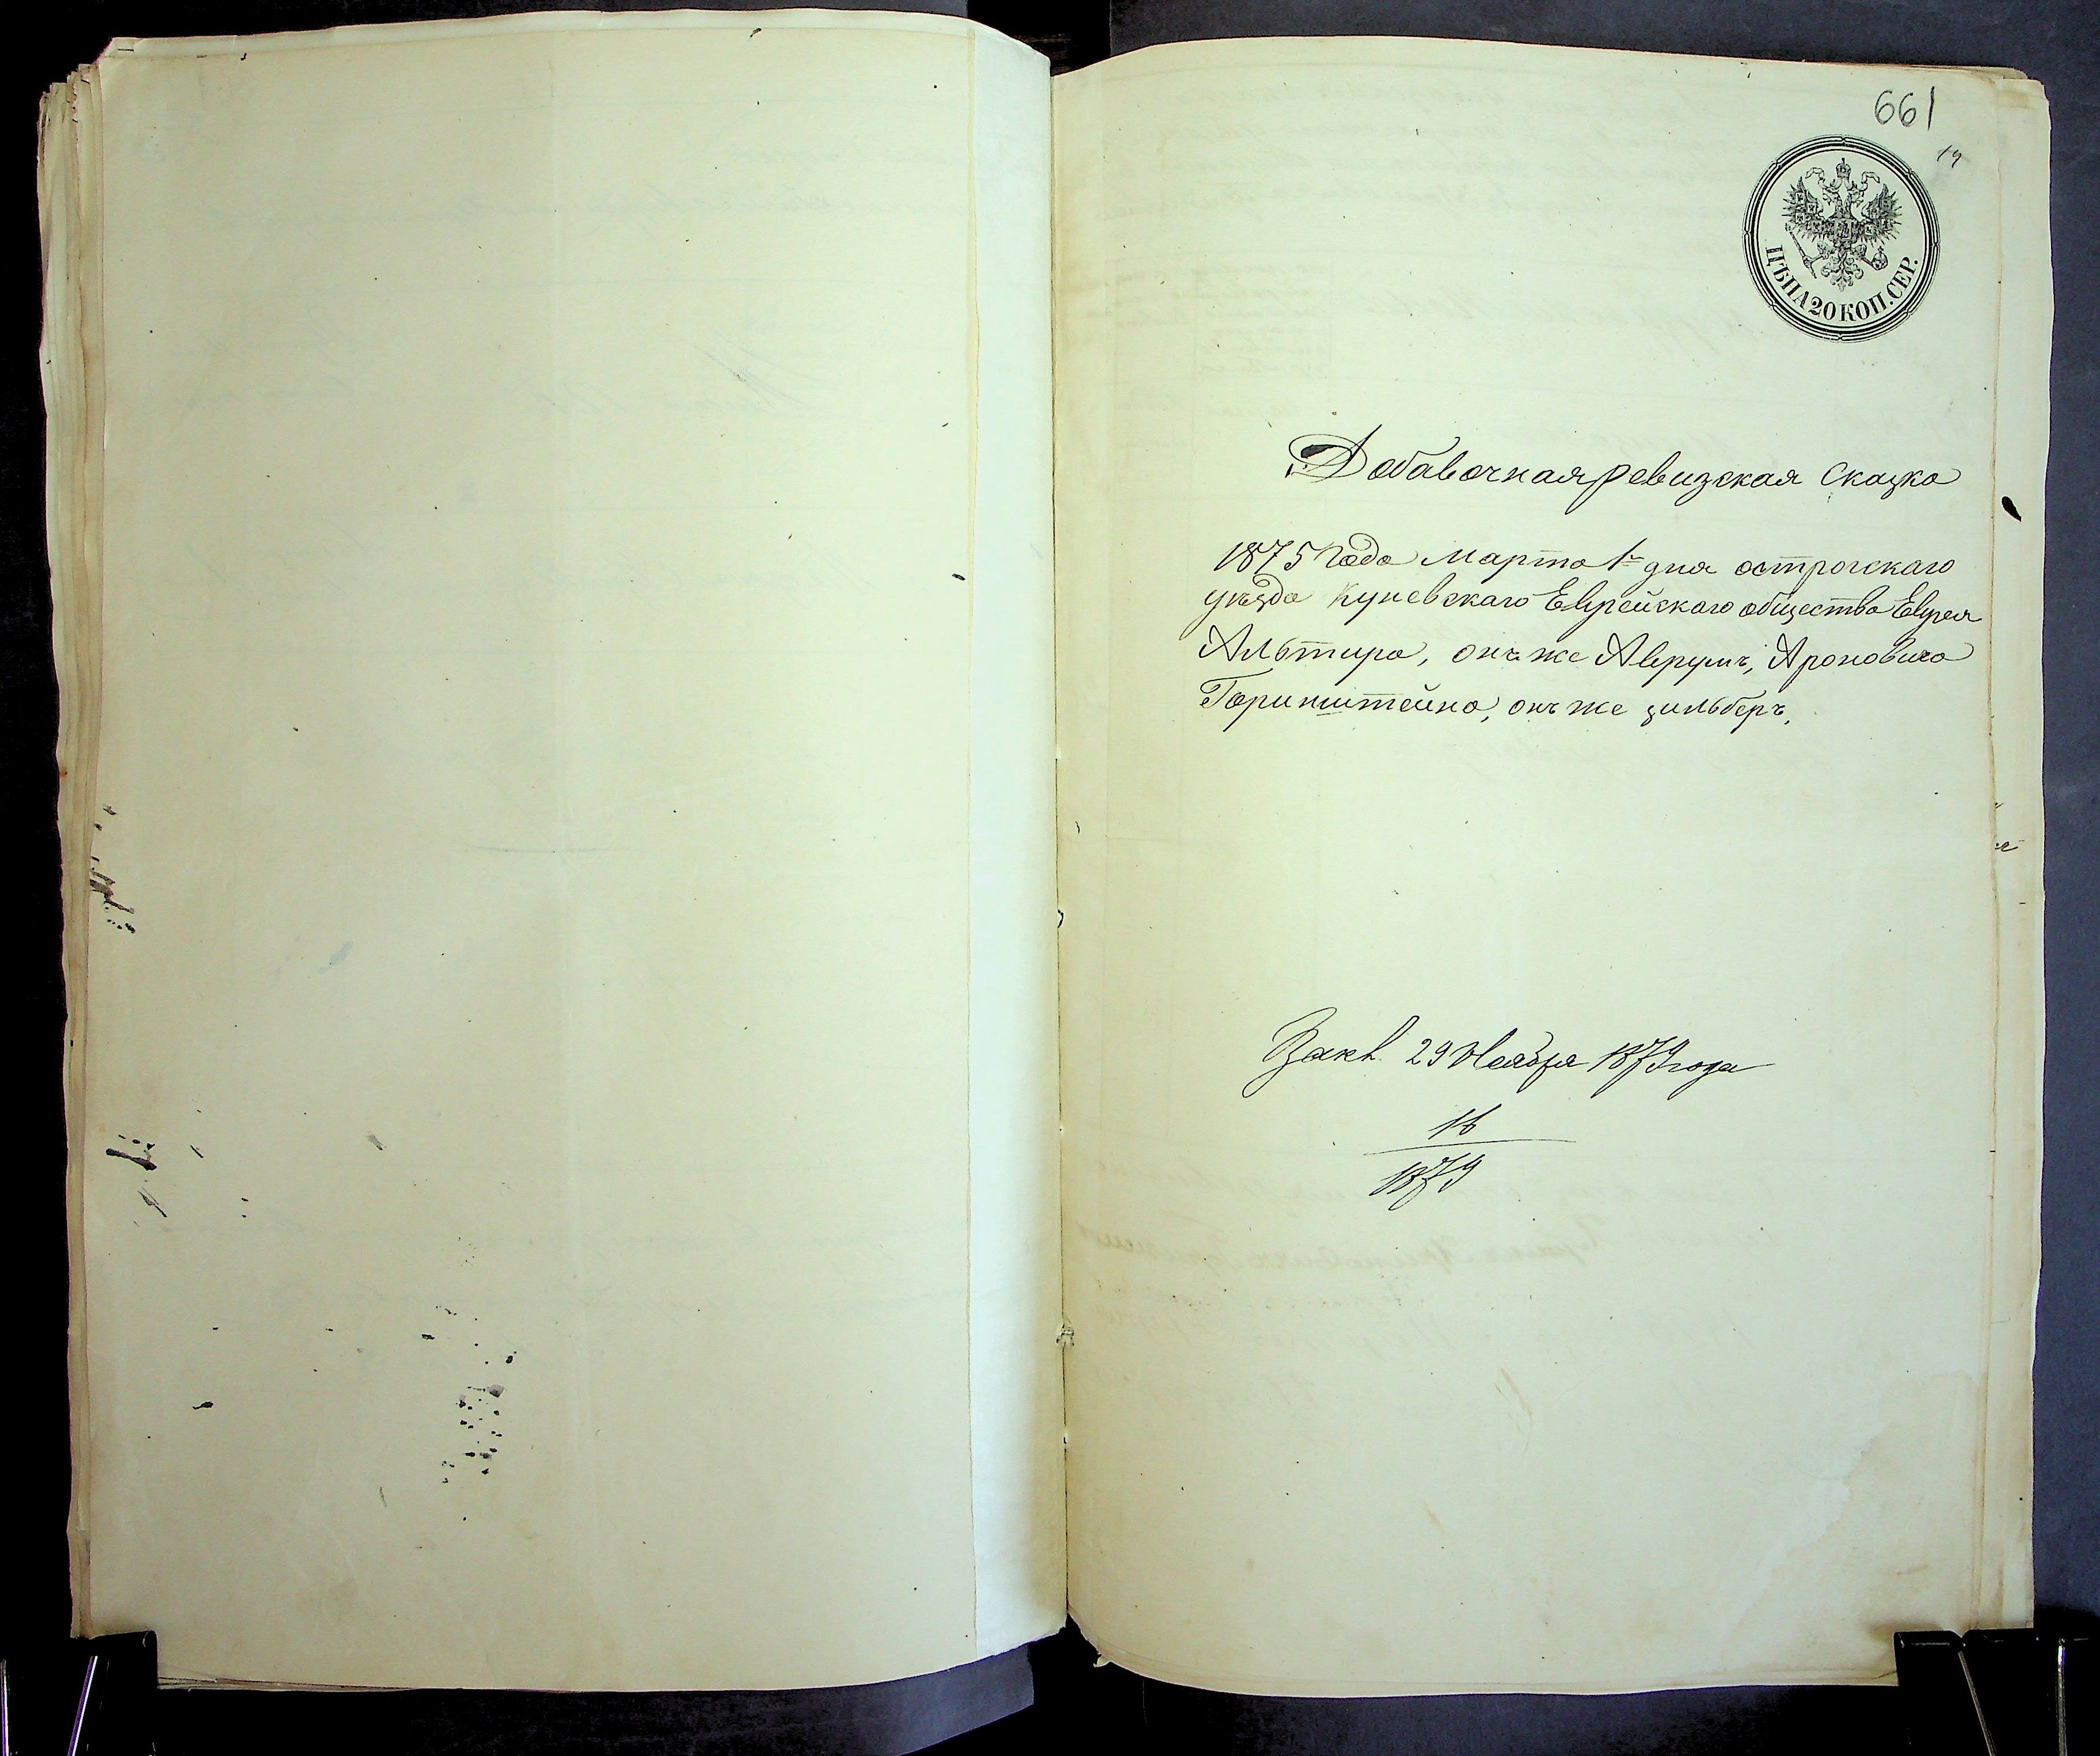 661
19
ЦѢНА 20 КОП. СЕР.
Добавочная ревизская сказка
1875 года марта 1го дня острогскаго
уѣзда Куневскаго Еврейскаго общества Еврея
Альтира, онъ же Аврумъ, Ароновича
Горинштейна, онъ же зильберъ.
29 Ноября 1879 года
16
1879